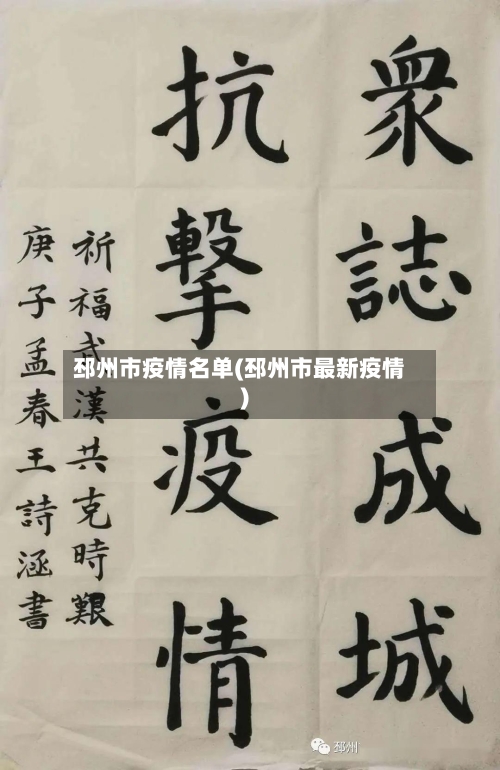 衆誌成城
抗擊疫情
祈福武漢共克時艱
庚子孟春王詩涵書
邳州市疫情名单(邳州市最新疫情
)
邳州